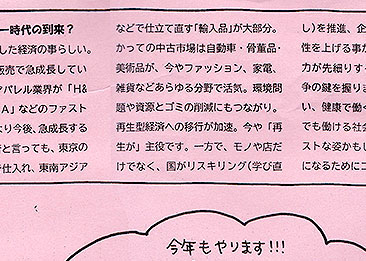 ー時代の到来？
した経済の事らしい。
販売で急成長してい
パレル業界が「H&
A」などのファスト
より今後、急成長する
と言っても、東京の
仕入れ、東南アジア
などで仕立て直す「輸入品」が大部分。
かつての中古市場は自動車・骨董品・
美術品が、今やファッション、家電、
雑貨などあらゆる分野で活気。環境問
題や資源とゴミの削減にもつながり。
再生型経済への移行が加速。今や「再
生が」主役です。一方で、モノや店だ
けでなく、国がリスキリング（学び直
し）を推進、企
性を上げる事が
力が先細りす
争の鍵を握りま
い、健康で働く
でも働ける社会
ストな姿かもし
になるためにコ
今年もやります!!!